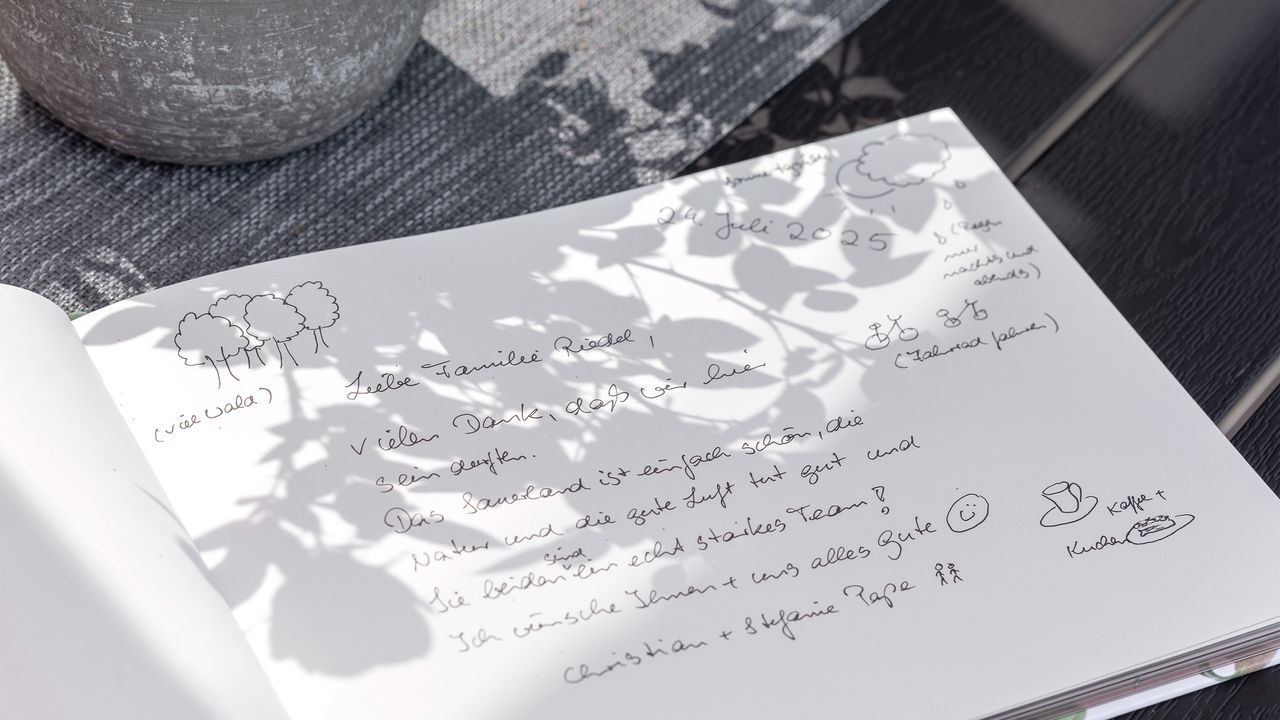 24. Juli 2025
(Regen
nur
nachts und
abends)
(Fahrrad fahren)
(viel Wald)
Liebe Familie Riedel,
Vielen Dank, daß wir hier
sein durften.
Das Sauerland ist einfach schön, die
Natur und die gute Luft tut gut und
Sie beiden sind ein echt starkes Team!
Ich wünsche Ihnen + uns alles Gute
Christian + Stefanie Pape
Kaffee +
Kuchen